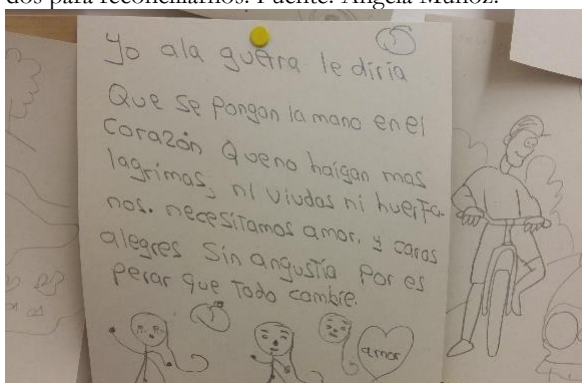 dos para reconciliarnos. Fuente: Ángela Muñoz.
Yo ala guerra le diria
Que se pongan la mano en el
corazón Que no haigan mas
lagrimas, ni viudas ni huerfa-
nos. necesitamos amor, y caras
alegres sin angustia por es
perar que todo cambie.
amor